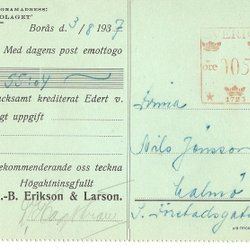 GRAMADRESS:
OLAGET"
Borås d. 3/8 1937
Med dagens post emottogo
55:04
acksamt krediterat Edert v.
gt uppgift
ekommenderande oss teckna
Högaktningsfullt
.-B. Erikson & Larson.
VERIG
öre 005
1723
Firma
Nils Jönsson
Malmö
S. Förstadsgat